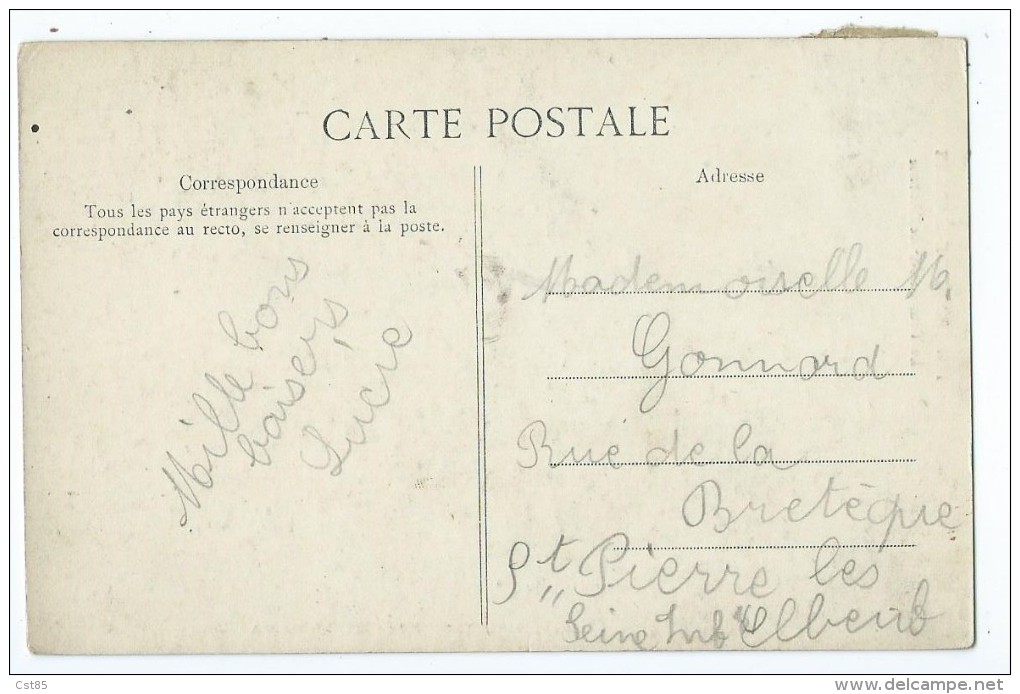 CARTE POSTALE
Correspondance
Tous les pays étrangers n'acceptent pas la
correspondance au recto, se renseigner à la poste.
Mille bons
baisers
Lucie
Adresse
Mademoiselle M.
Gonnord
Rue de la
Bretèque
St Pierre les
Seine Inf Elbeub
Cst85
delcampe.net